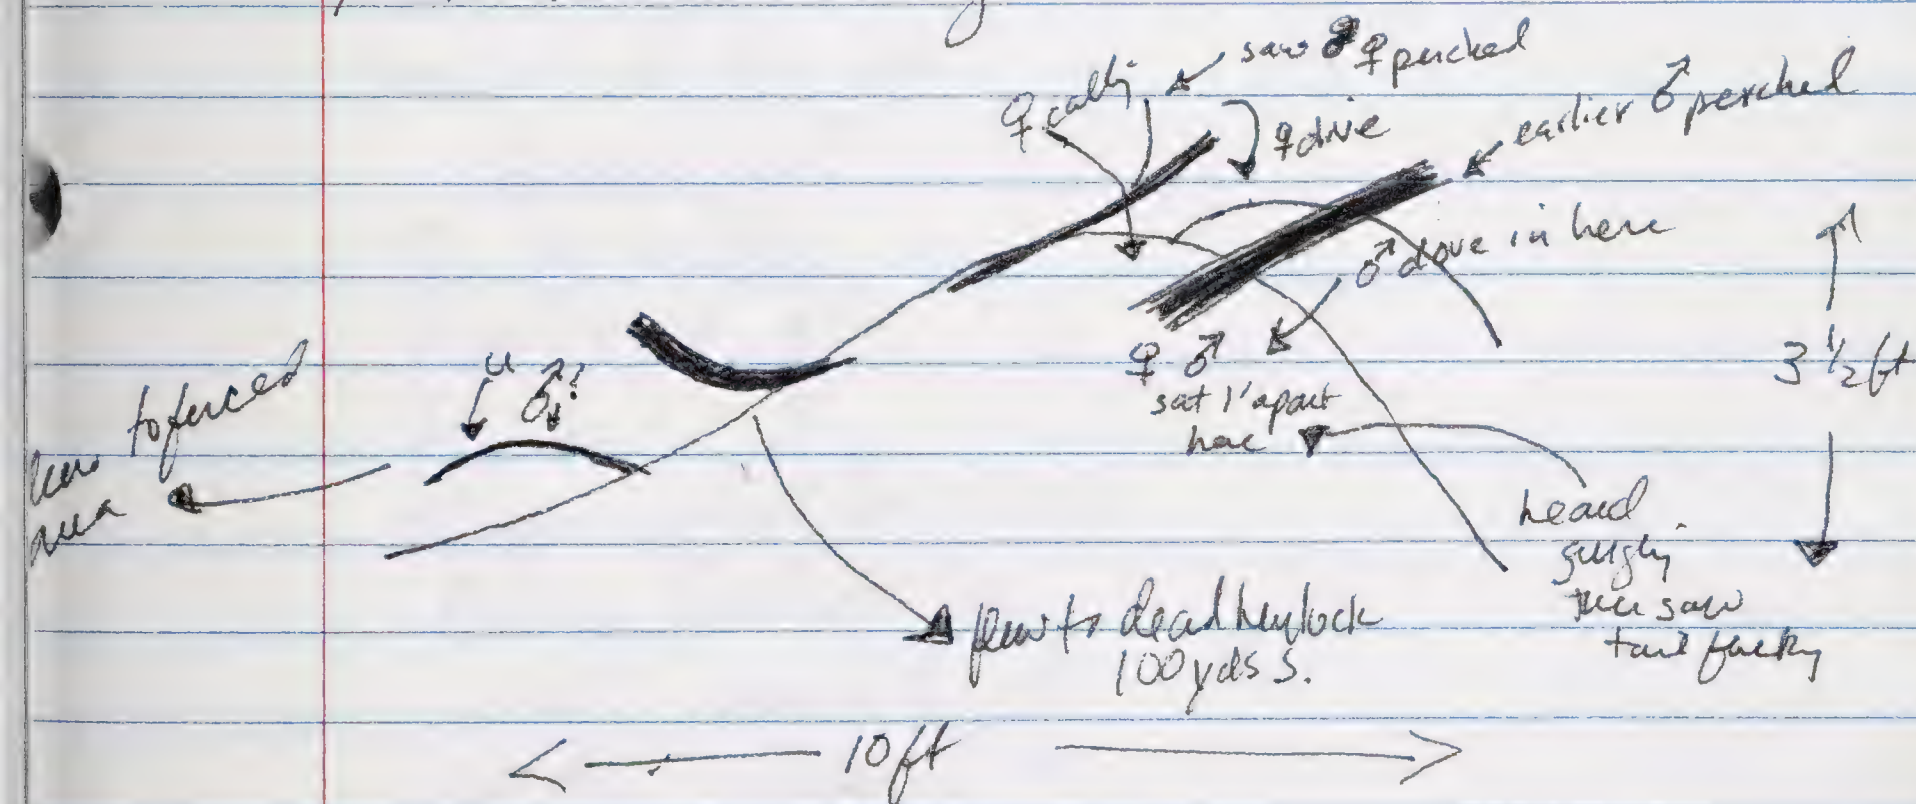 saw ♀ perched
♀ calling
♀ dive
earlier ♂ perched
♂ dove in here
♀ ♂
sat 1' apart
here
3 1/2 ft
u ♂?
to fenced
area
heard
then saw
tail
flew to dead hemlock
100 yds S.
10 ft